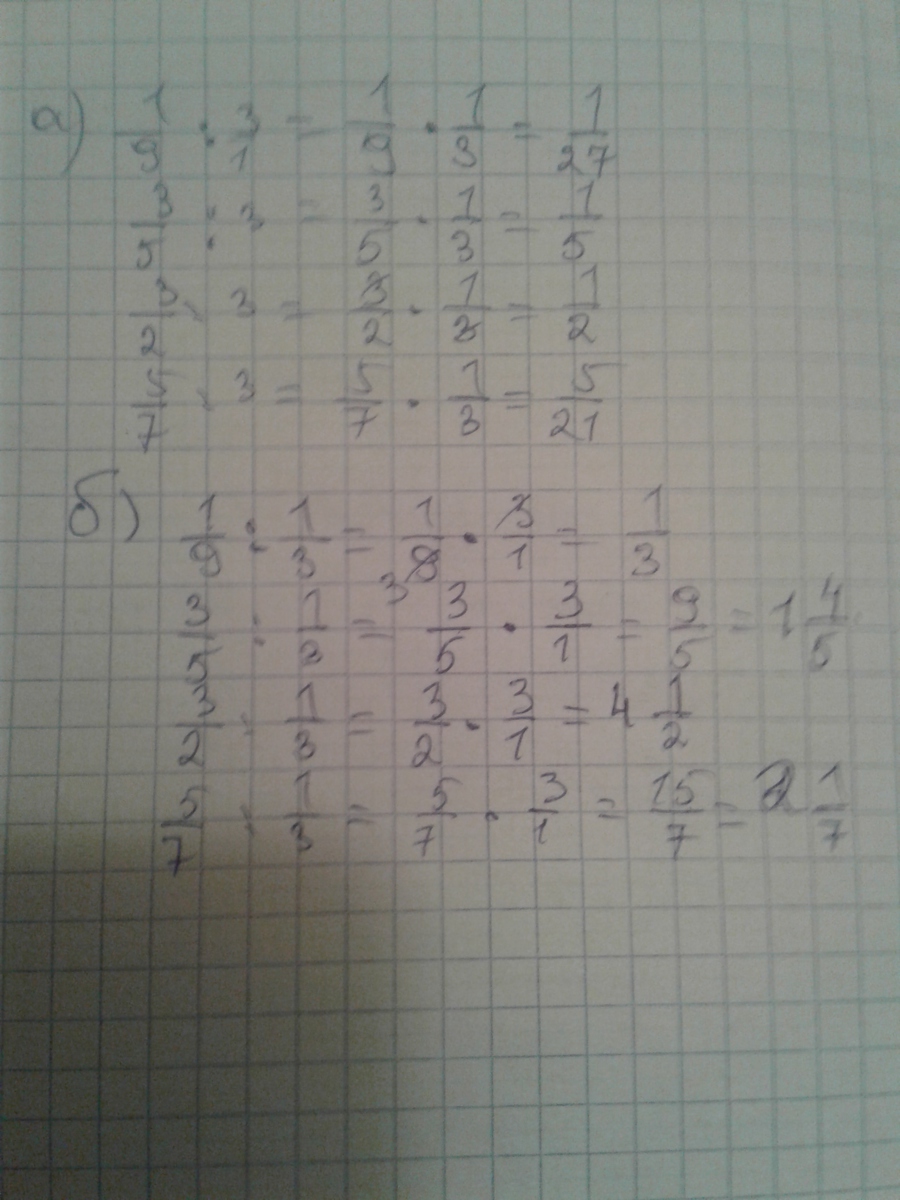 а) 1/9 : 3/1 = 1/9 · 1/3 = 1/27
3/5 : 3 = 3/5 · 1/3 = 1/5
3/2 : 3 = 3/2 · 1/3 = 1/2
5/7 : 3 = 5/7 · 1/3 = 5/21
б) 1/9 : 1/3 = 1/9 3 · 3/1 = 1/3
3/5 : 1/3 = 3/5 · 3/1 = 9/5 = 1 4/5
3/2 : 1/3 = 3/2 · 3/1 = 4 1/2
5/7 : 1/3 = 5/7 · 3/1 = 15/7 = 2 1/7